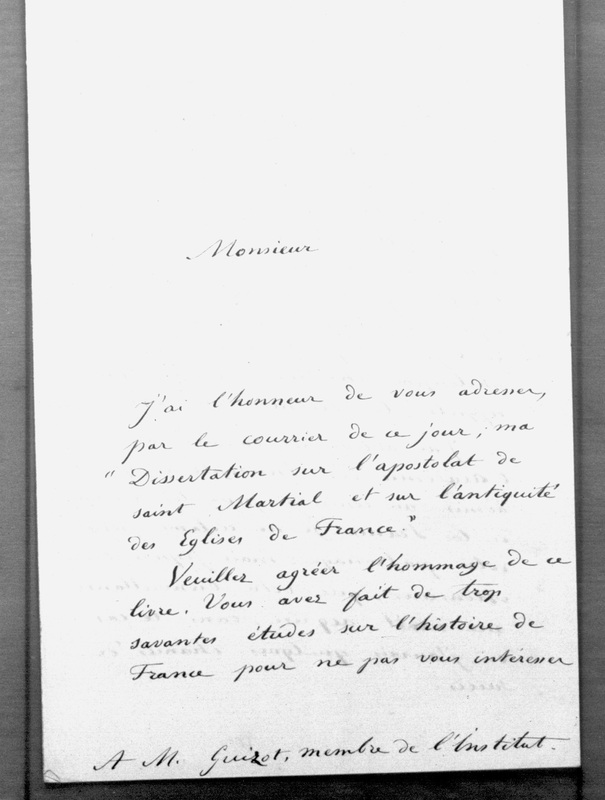 Monsieur
J'ai l'honneur de vous adresser,
par le courrier de ce jour, ma
" Dissertation sur l'apostolat de
saint Martial et sur l'antiquité
des Eglises de France."
Veuillez agréer l'hommage de ce
livre. Vous avez fait de trop
savantes études sur l'histoire de
France pour ne pas vous intéresser
A M. Guizot, membre de l'Institut.